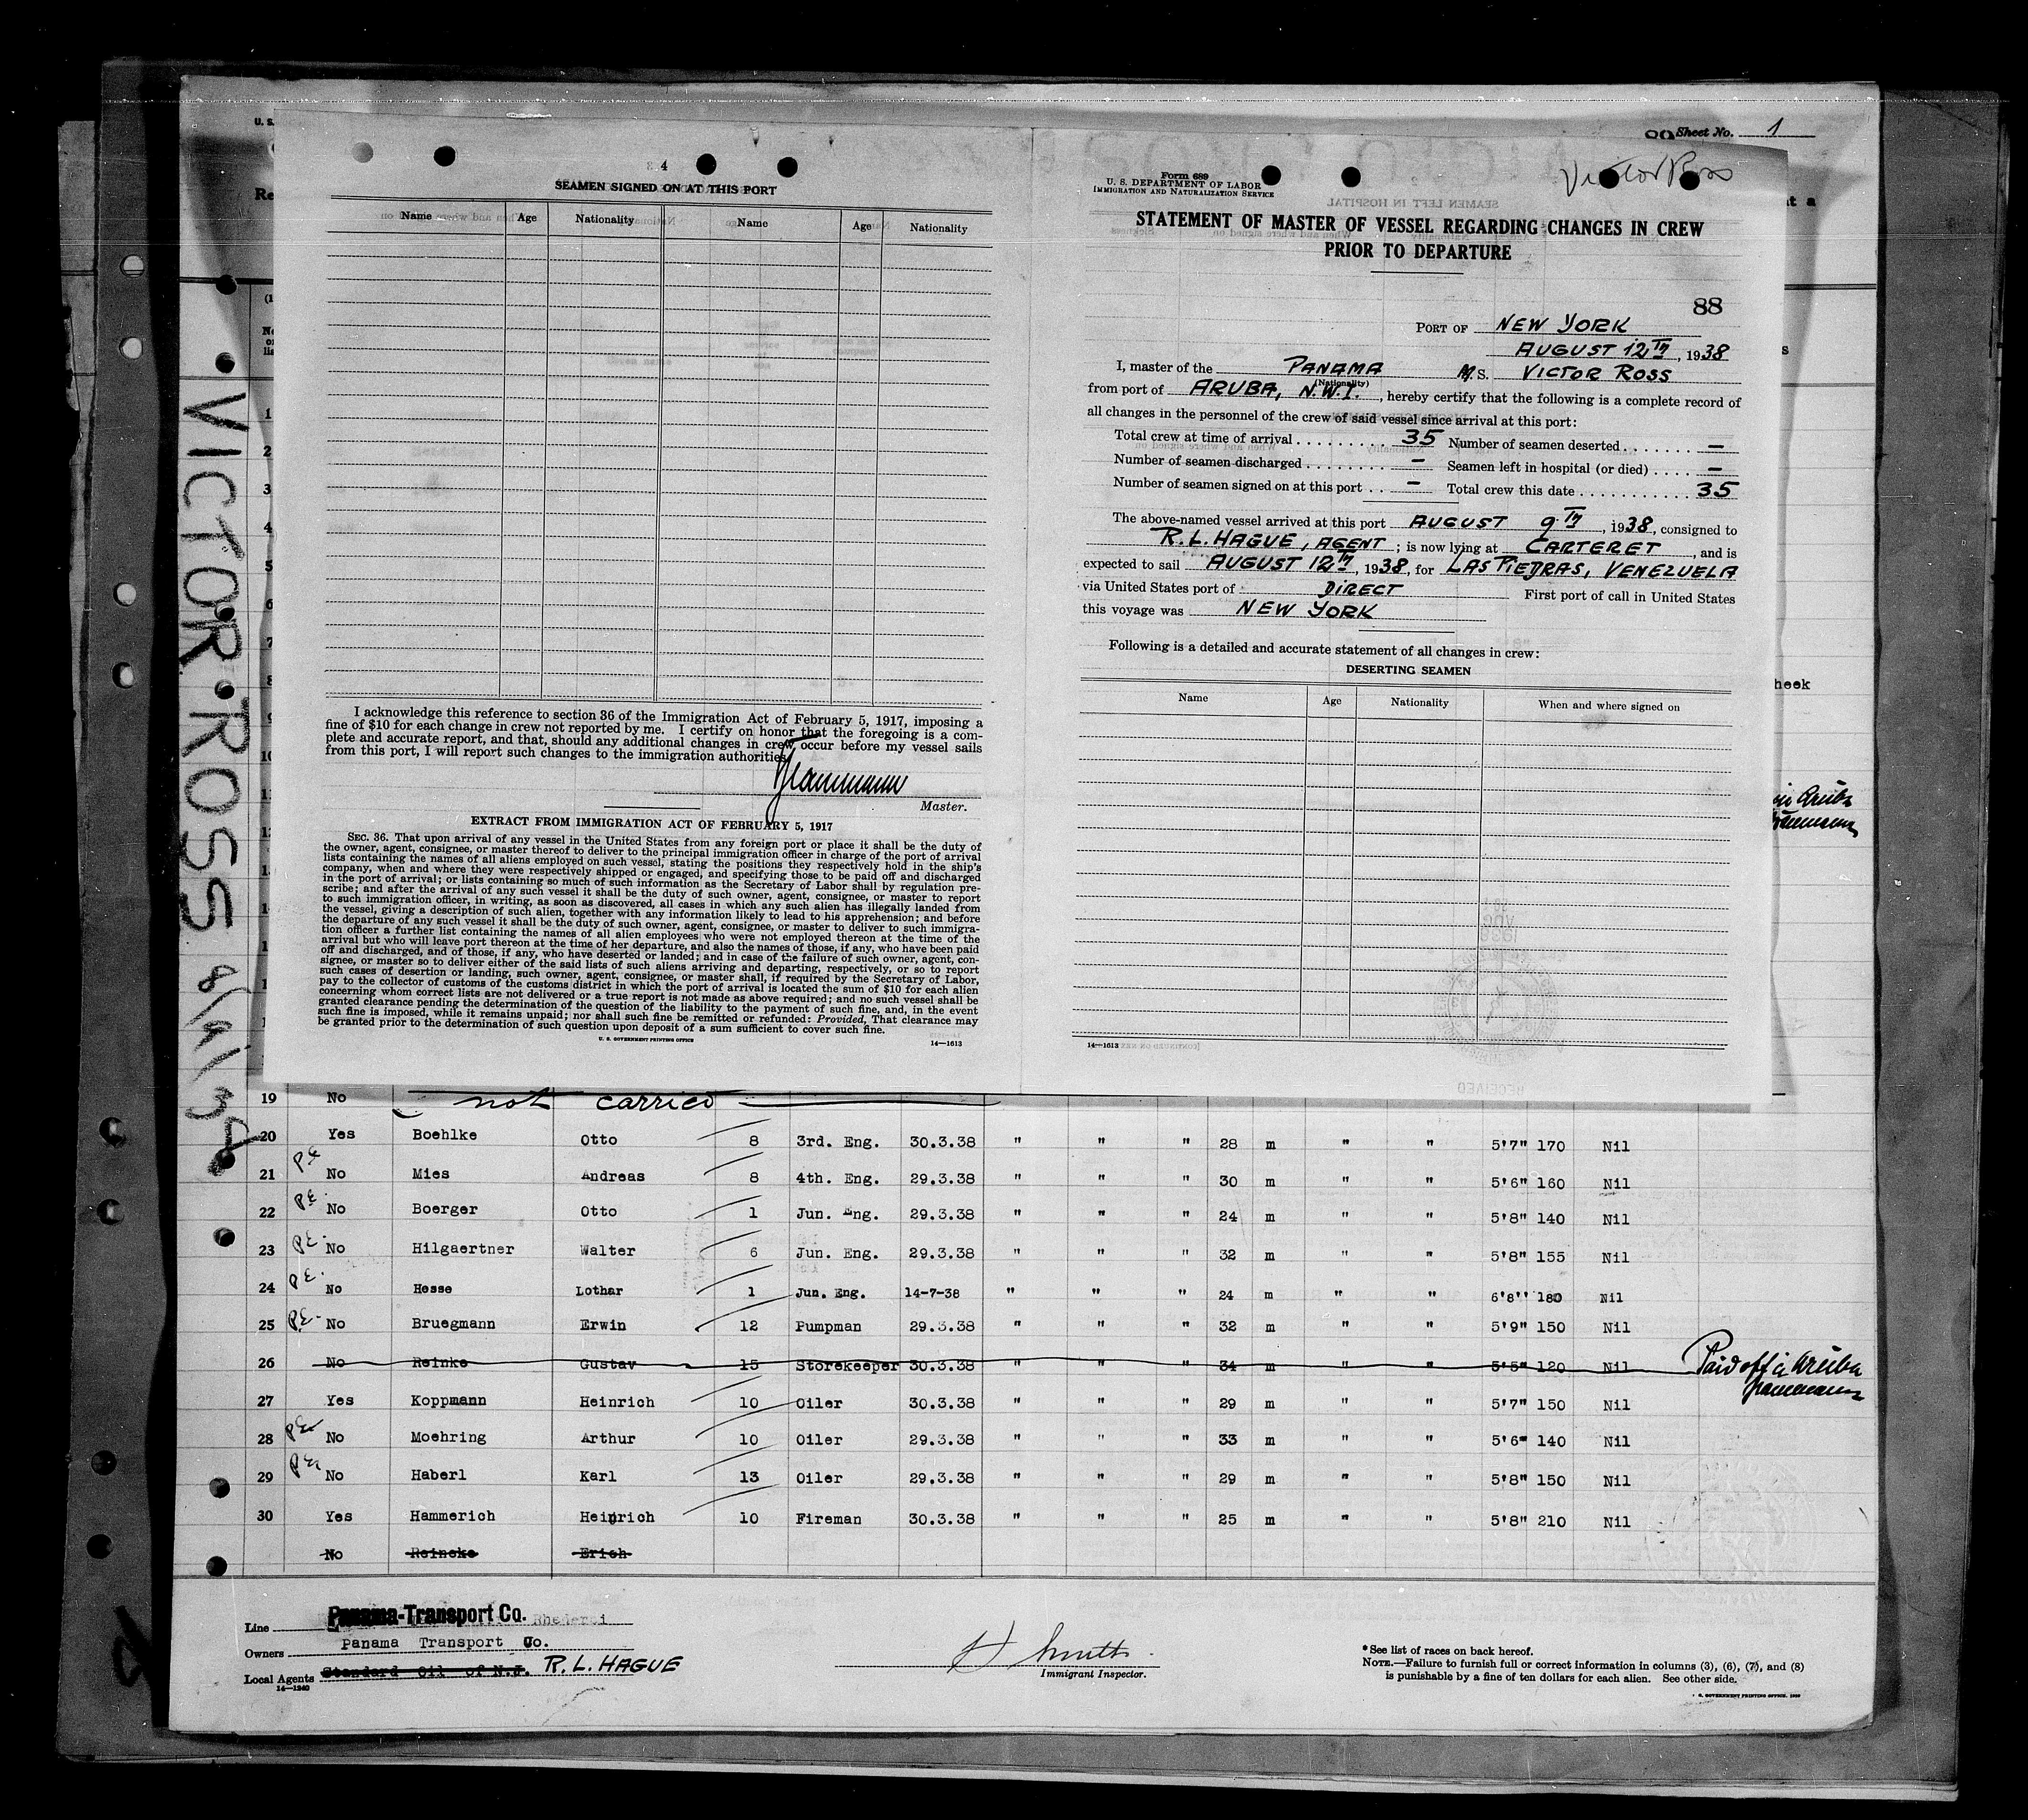 U. S.
Sheet No. 1
Re
at a
VICTOR ROSS 8/9/38
4
SEAMEN SIGNED ON AT THIS PORT
Name Age Nationality Name Age Nationality
I acknowledge this reference to section 36 of the Immigration Act of February 5, 1917, imposing a
fine of $10 for each change in crew not reported by me. I certify on honor that the foregoing is a com-
plete and accurate report, and that, should any additional changes in crew occur before my vessel sails
from this port, I will report such changes to the immigration authorities.
Master.
EXTRACT FROM IMMIGRATION ACT OF FEBRUARY 5, 1917
SEC. 36. That upon arrival of any vessel in the United States from any foreign port or place it shall be the duty of
the owner, agent, consignee, or master thereof to deliver to the principal immigration officer in charge of the port of arrival
lists containing the names of all aliens employed on such vessel, stating the positions they respectively hold in the ship's
company, when and where they were respectively shipped or engaged, and specifying those to be paid off and discharged
in the port of arrival; or lists containing so much of such information as the Secretary of Labor shall by regulation pre-
scribe; and after the arrival of any such vessel it shall be the duty of such owner, agent, consignee, or master to report
to such immigration officer, in writing, as soon as discovered, all cases in which any such alien has illegally landed from
the vessel, giving a description of such alien, together with any information likely to lead to his apprehension; and before
the departure of any such vessel it shall be the duty of such owner, agent, consignee, or master to deliver to such immigra-
tion officer a further list containing the names of all alien employees who were not employed thereon at the time of the
arrival but who will leave port thereon at the time of her departure, and also the names of those, if any, who have been paid
off and discharged, and of those, if any, who have deserted or landed; and in case of the failure of such owner, agent, con-
signee, or master so to deliver either of the said lists of such aliens arriving and departing, respectively, or so to report
such cases of desertion or landing, such owner, agent, consignee, or master shall, if required by the Secretary of Labor,
pay to the collector of customs of the customs district in which the port of arrival is located the sum of $10 for each alien
concerning whom correct lists are not delivered or a true report is not made as above required; and no such vessel shall be
granted clearance pending the determination of the question of the liability to the payment of such fine, and, in the event
such fine is imposed, while it remains unpaid; nor shall such fine be remitted or refunded: Provided, That clearance may
be granted prior to the determination of such question upon deposit of a sum sufficient to cover such fine.
U. S. GOVERNMENT PRINTING OFFICE 14—1613
Form 689
U. S. DEPARTMENT OF LABOR
IMMIGRATION AND NATURALIZATION SERVICE
Victor Ross
STATEMENT OF MASTER OF VESSEL REGARDING CHANGES IN CREW
PRIOR TO DEPARTURE
88
PORT OF NEW YORK
AUGUST 12TH, 1938
I, master of the PANAMA M.S. VICTOR ROSS
(Nationality)
from port of ARUBA, N.W.I., hereby certify that the following is a complete record of
all changes in the personnel of the crew of said vessel since arrival at this port:
Total crew at time of arrival 35 Number of seamen deserted —
Number of seamen discharged — Seamen left in hospital (or died) —
Number of seamen signed on at this port — Total crew this date 35
The above-named vessel arrived at this port AUGUST 9TH, 1938, consigned to
R.L. HAGUE, AGENT; is now lying at CARTERET, and is
expected to sail AUGUST 12TH, 1938, for LAS PIEDRAS, VENEZUELA
via United States port of DIRECT First port of call in United States
this voyage was NEW YORK
Following is a detailed and accurate statement of all changes in crew:
DESERTING SEAMEN
Name Age Nationality When and where signed on
14—1613
heek
in Aruba
19 No not carried
20 Yes Boehlke Otto 8 3rd. Eng. 30.3.38 " " " 28 m " " 5'7" 170 Nil
21 PE No Mies Andreas 8 4th. Eng. 29.3.38 " " " 30 m " " 5'6" 160 Nil
22 PE. No Boerger Otto 1 Jun. Eng. 29.3.38 " " " 24 m " " 5'8" 140 Nil
23 PE. No Hilgaertner Walter 6 Jun. Eng. 29.3.38 " " " 32 m " " 5'8" 155 Nil
24 PE. No Hesse Lothar 1 Jun. Eng. 14-7-38 " " " 24 m " " 6'8'' 180 Nil
25 PE. No Bruegmann Erwin 12 Pumpman 29.3.38 " " " 32 m " " 5'9" 150 Nil
26 No Reinke Gustav 15 Storekeeper 30.3.38 " " " 34 m " " 5'5" 120 Nil Paid off in Aruba
27 Yes Koppmann Heinrich 10 Oiler 30.3.38 " " " 29 m " " 5'7" 150 Nil
28 PE No Moehring Arthur 10 Oiler 29.3.38 " " " 33 m " " 5'6" 140 Nil
29 PE No Haberl Karl 13 Oiler 29.3.38 " " " 29 m " " 5'8" 150 Nil
30 Yes Hammerich Heinrich 10 Fireman 30.3.38 " " " 25 m " " 5'8" 210 Nil
No Reincke Erich
Line Panama-Transport Co. Rhederei
Owners Panama Transport Co.
Local Agents Standard Oil of N.J. R.L. HAGUE
14—1240
Immigrant Inspector.
*See list of races on back hereof.
NOTE.—Failure to furnish full or correct information in columns (3), (6), (7), and (8)
is punishable by a fine of ten dollars for each alien. See other side.